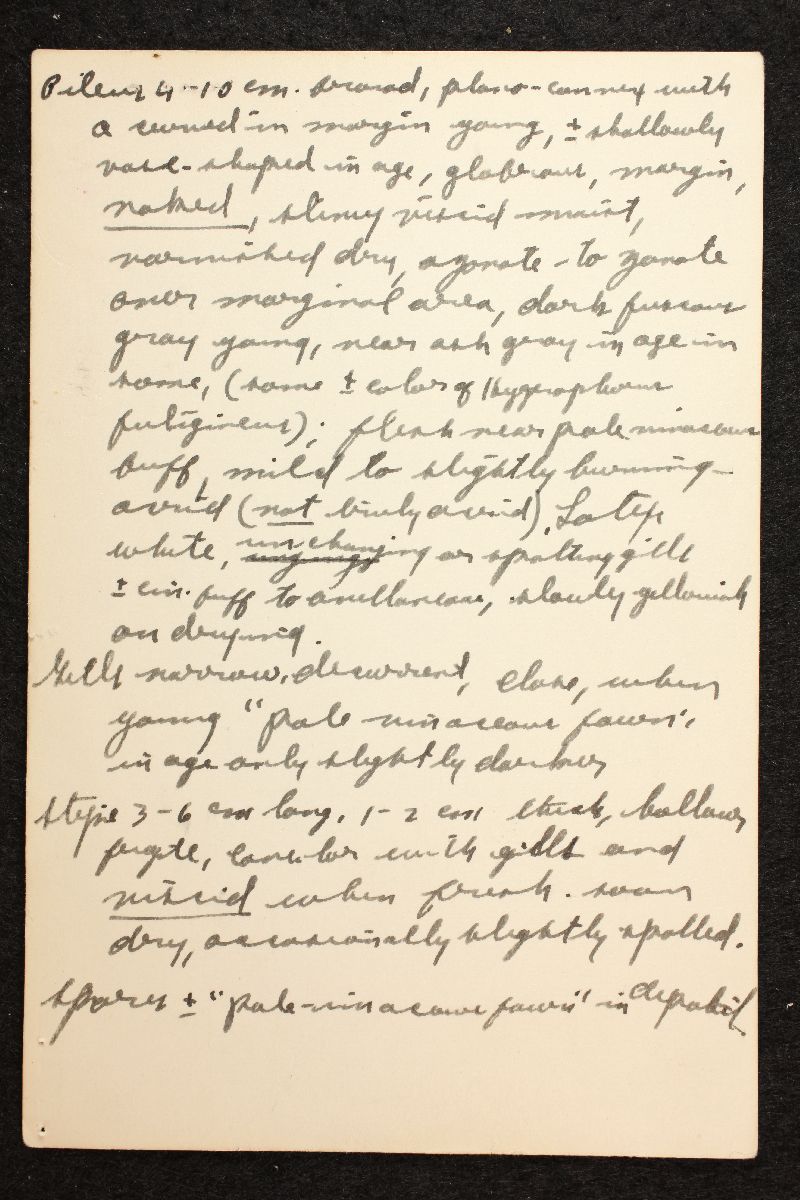 Pileus 4-10 cm. broad, plano-convex with
a curved-in margin young, ± shallowly
vase-shaped in age, glabrous, margin,
naked, slimy viscid moist,
varnished dry, azonate to zonate
over marginal area, dark fuscous
gray young, near ash gray in age in
some, (some ± color of Hygrophorus
fuligineus); flesh near pale vinaceous
buff, mild to slightly burning-
acrid (not truly acrid), Latex
white, unchanging or spotting gills
± cin. buff to avellaneous, slowly yellowish
on drying.
Gills narrow, decurrent, close, when
young "pale vinaceous fawn",
in age only slightly darker
Stipe 3-6 cm long, 1-2 cm thick, hollow,
concolor with gills and
viscid when fresh. soon
dry, occasionally slightly spotted.
Spores ± "pale-vinaceous fawn" in deposit